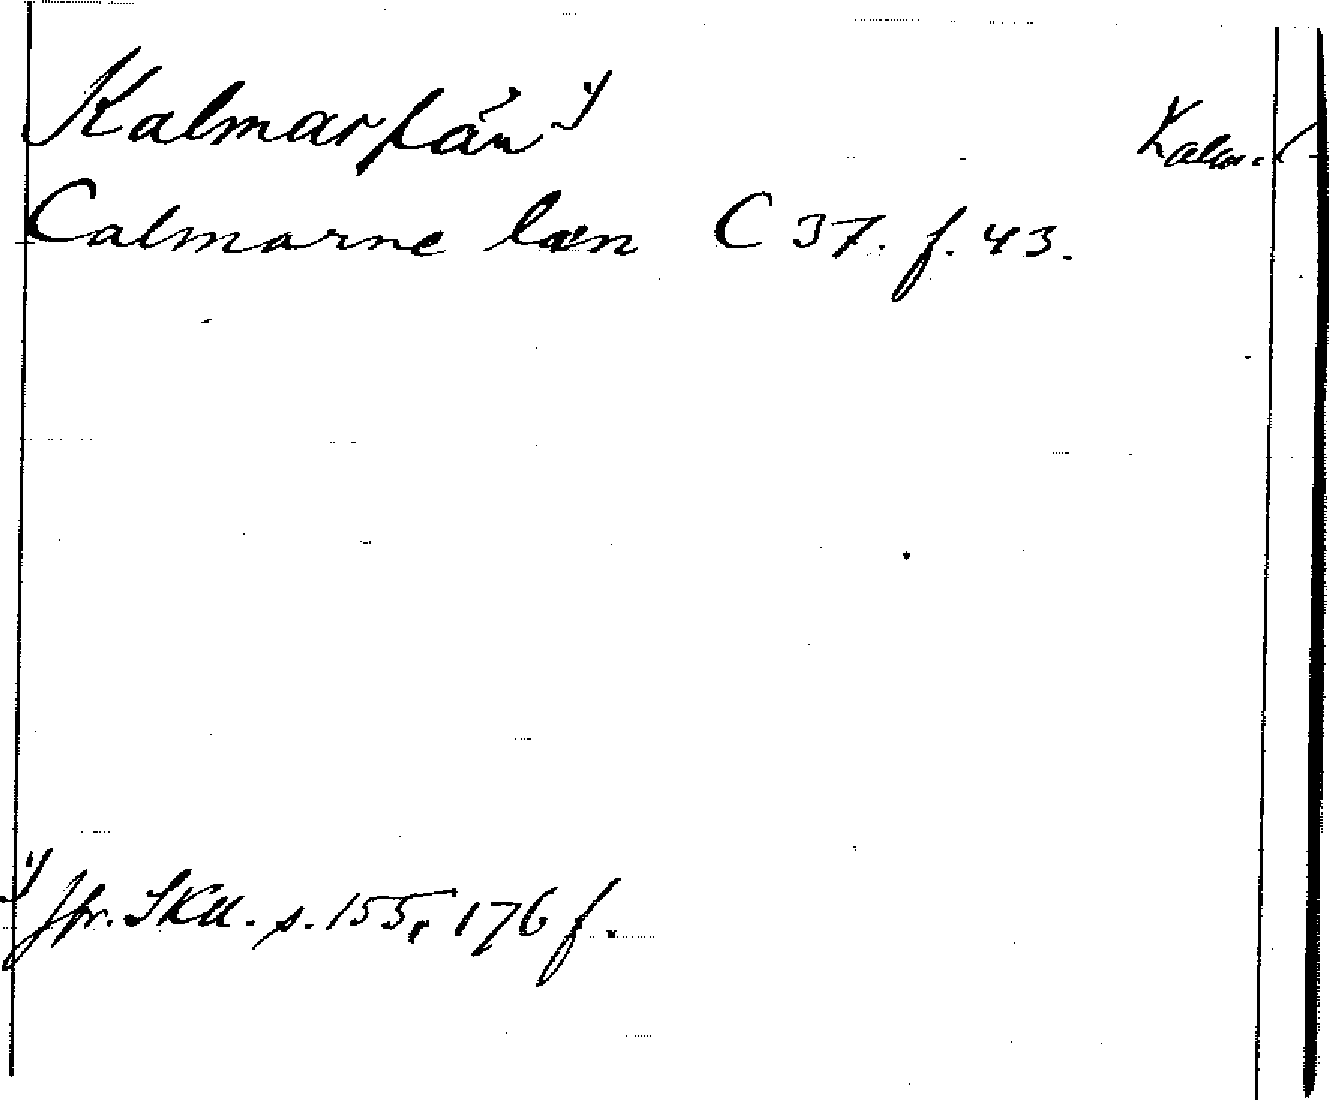 Kalmar län ¹⁾ Kalm. l
Calmarne læn C 37. f. 43.
¹⁾ Jfr. SKU. s. 155, 176 f.